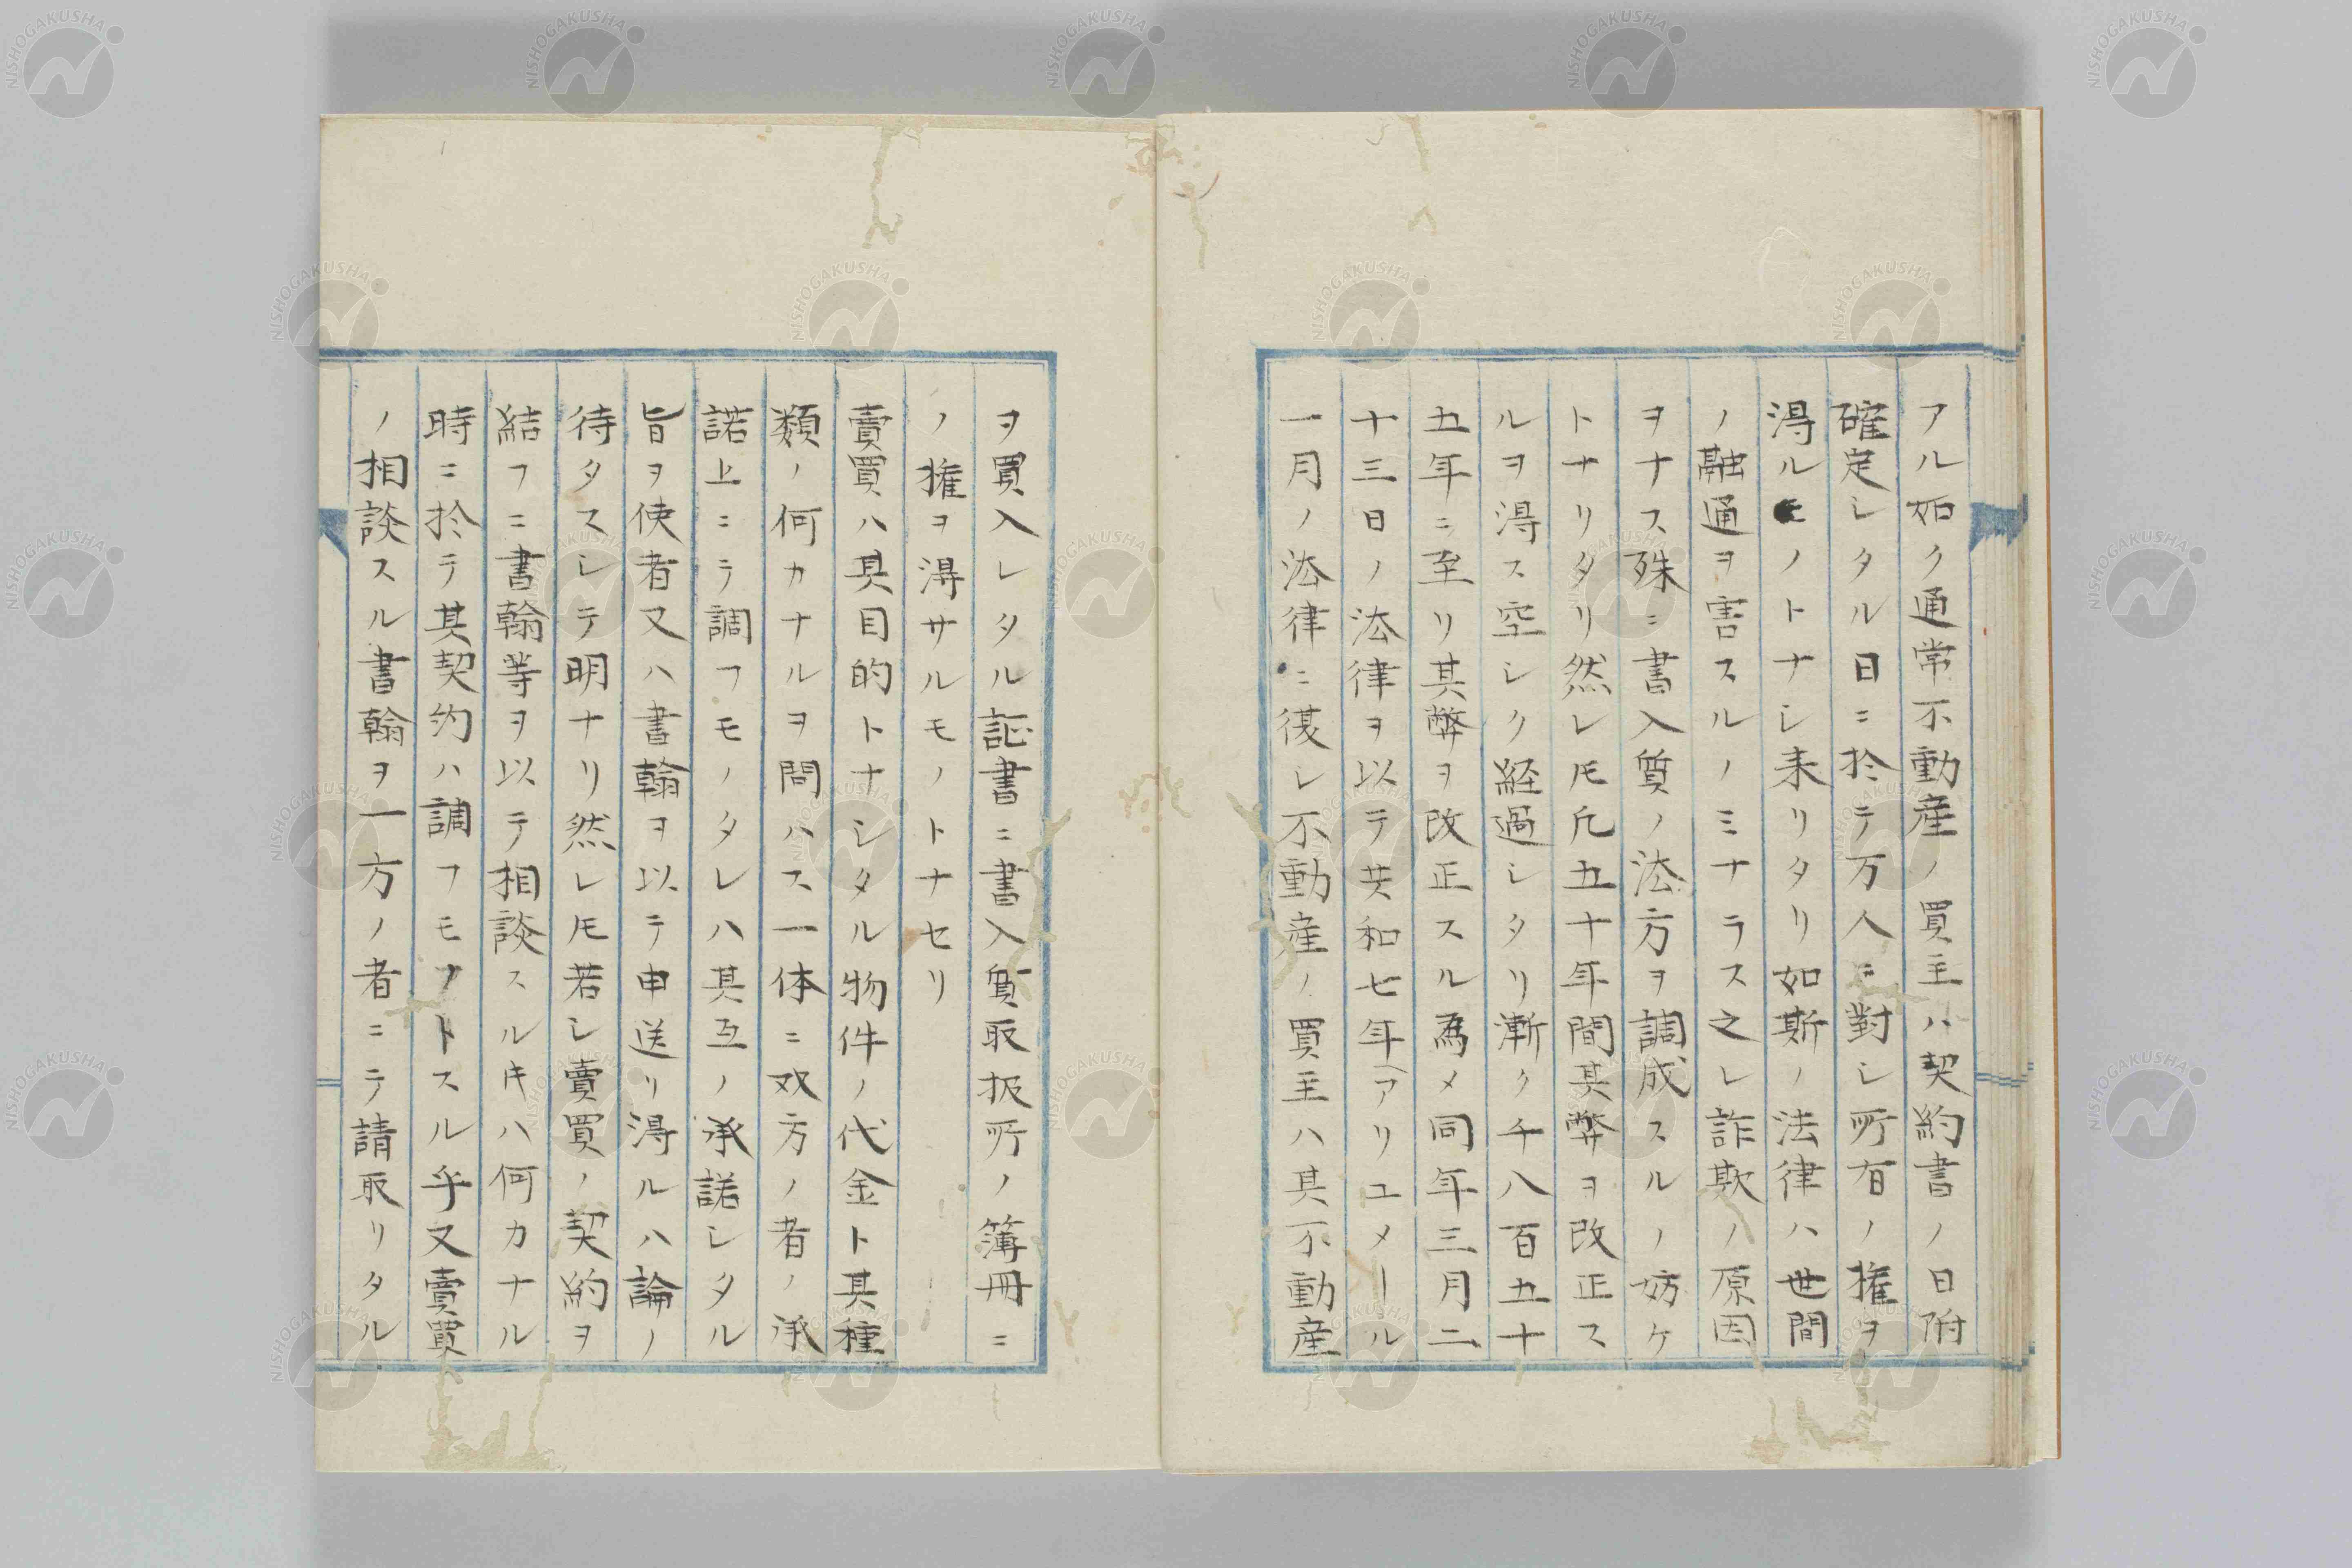 アル如ク通常不動産ノ買主ハ契約書ノ日附
確定シタル日ニ於テ万人ニ對シ所有ノ権ヲ
得ルモノトナシ来リタリ如斯ノ法律ハ世間
ノ融通ヲ害スルノミナラス之レ詐欺ノ原因
ヲナス殊ニ書入質ノ法方ヲ調成スルノ妨ケ
トナリタリ然レ𪜈凡五十年間其弊ヲ改正ス
ルヲ得ス空シク経過シタリ漸ク千八百五十
五年ニ至リ其弊ヲ改正スル為メ同年三月二
十三日ノ法律ヲ以テ共和七年アリユメール
一月ノ法律ニ復シ不動産ノ買主ハ其不動産
ヲ買入レタル証書ニ書入質取扱所ノ簿冊ニ
ノ権ヲ得サルモノトナセリ
賣買ハ其目的トナシタル物件ノ代金ト其種
類ノ何カナルヲ問ハス一体ニ双方ノ者ノ承
諾上ニテ調フモノタレハ其互ノ承諾シタル
旨ヲ使者又ハ書翰ヲ以テ申送リ得ルハ論ノ
待タスシテ明ナリ然レ𪜈若シ賣買ノ契約ヲ
結フニ書翰等ヲ以テ相談スルキハ何カナル
時ニ於テ其契約ハ調フモノトスル乎又賣買
ノ相談スル書翰ヲ一方ノ者ニテ請取リタル
NISHOGAKUSHA